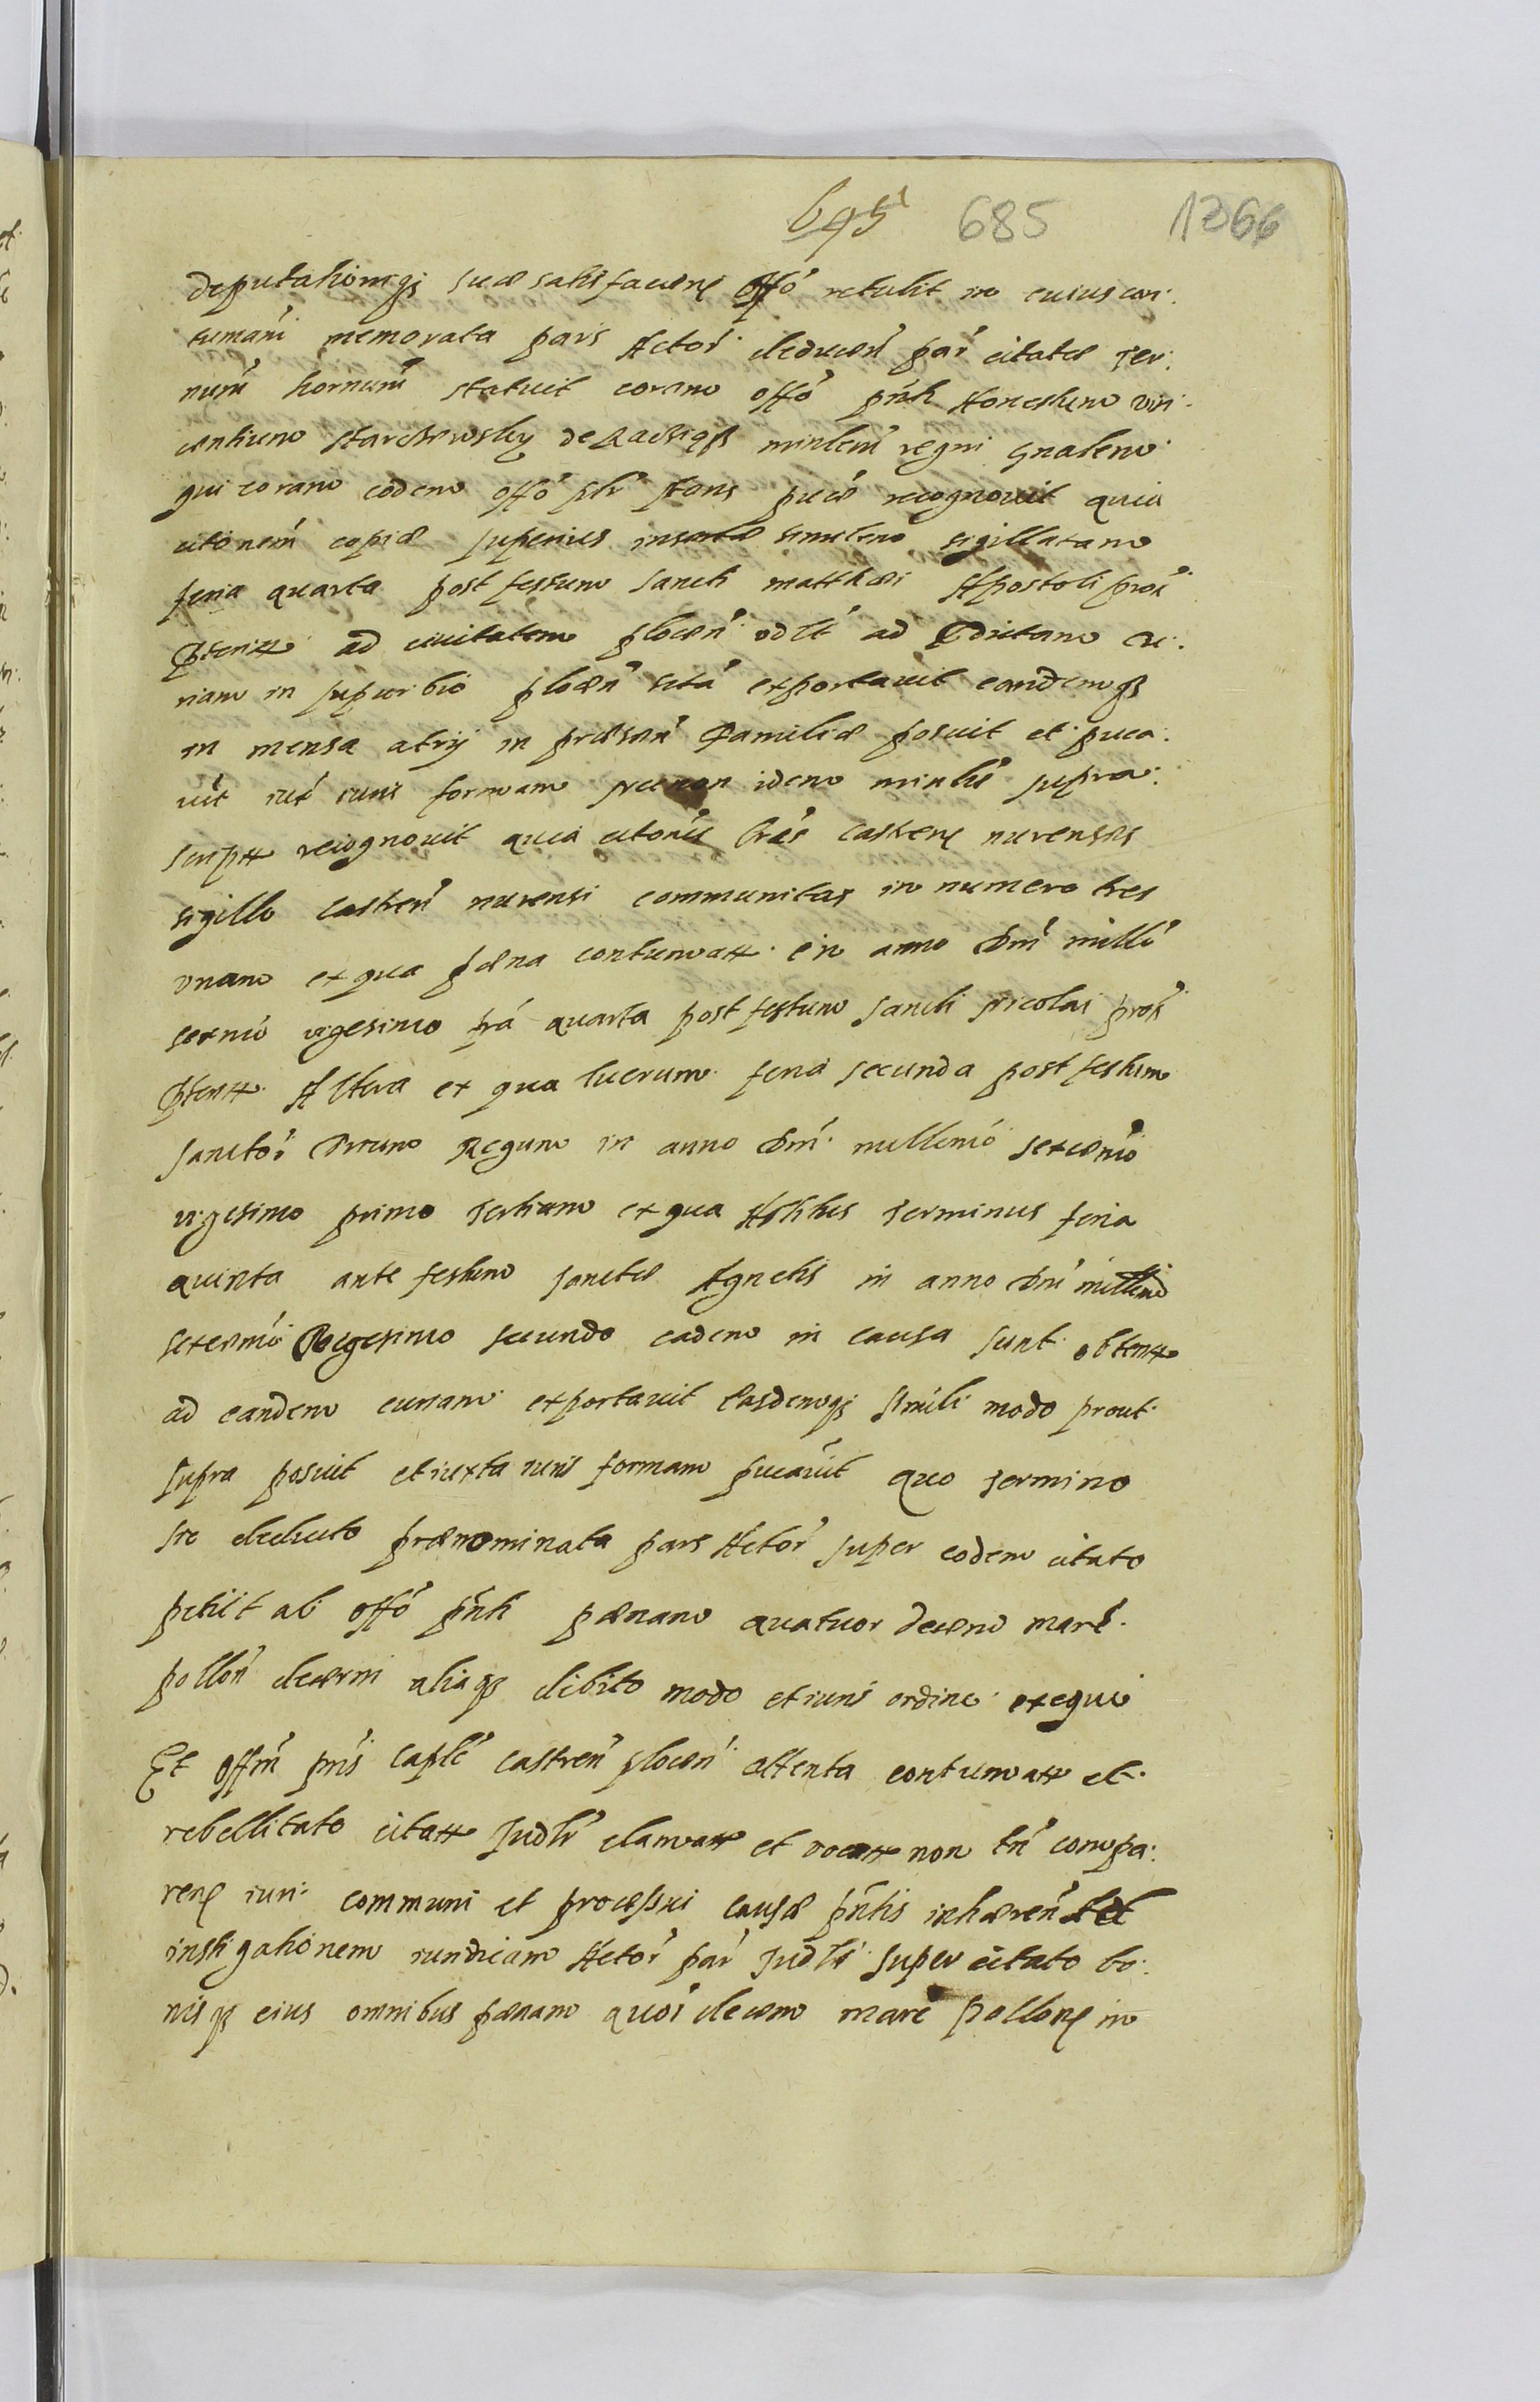 695 685 1266
deputationiq suæ satisfacien Offo retulit in cuius con.
tumam memorata pars Actor deducen par citatæ ter.
num hornum statuit coram offo pnti Honestum vin.
centium Starczewsky de minlem regni gnalem
qui coram eodem offo plr stans puce recognovit quia
citonem copiæ superius insertæ similem sigillatam
feria quarta post festum Sancti matthæi Apostoli prox
ptenit ad civitatem plocen ad dictam cu.
riam in suburbio plocen sita exportavit eandemq
in mensa atrij in præsen familiæ posuit et puca.
vit iux iuris formam necnon idem minlis supra.
script recognovit quia citonis lras castren nurenses
sigillo castren nurensi communitas in numero tres
unam ex qua pæna contumat in anno dni millo
sexmo vigesimo fra quarta post festum Sancti Nicolai prox
ptent Altera ex qua lucrum feria secunda post festum
Sanctor Trium Regum in anno dni millemo sexcemo
vigesimo primo tertiam ex qua terminus feria
quinta ante festum sanctæ Agnetis in anno dni millemo
sexcemo Vigesimo secundo eadem in causa sunt obtent
ad eandem curiam exportavit Easdemq simili modo prout
supra posuit et iuxta iuris formam pucavit quo termino
sic deducto prænominata pars Actor super eodem citato
petiit ab offo pnti pænam quatuor decem marc.
pollon decerni aliaq debito modo et iuris ordine exequi
Et offm pns caplē castren plocen attenta contumat et
rebellitate citat Judlr clamat et vocat non tn compa.
ren iuri communi et processui causæ pntis inhæren et
instigationem iuridicam Actor par Judlr super citato bo.
nisq eius omnibus pænam quor decem marc pollon in